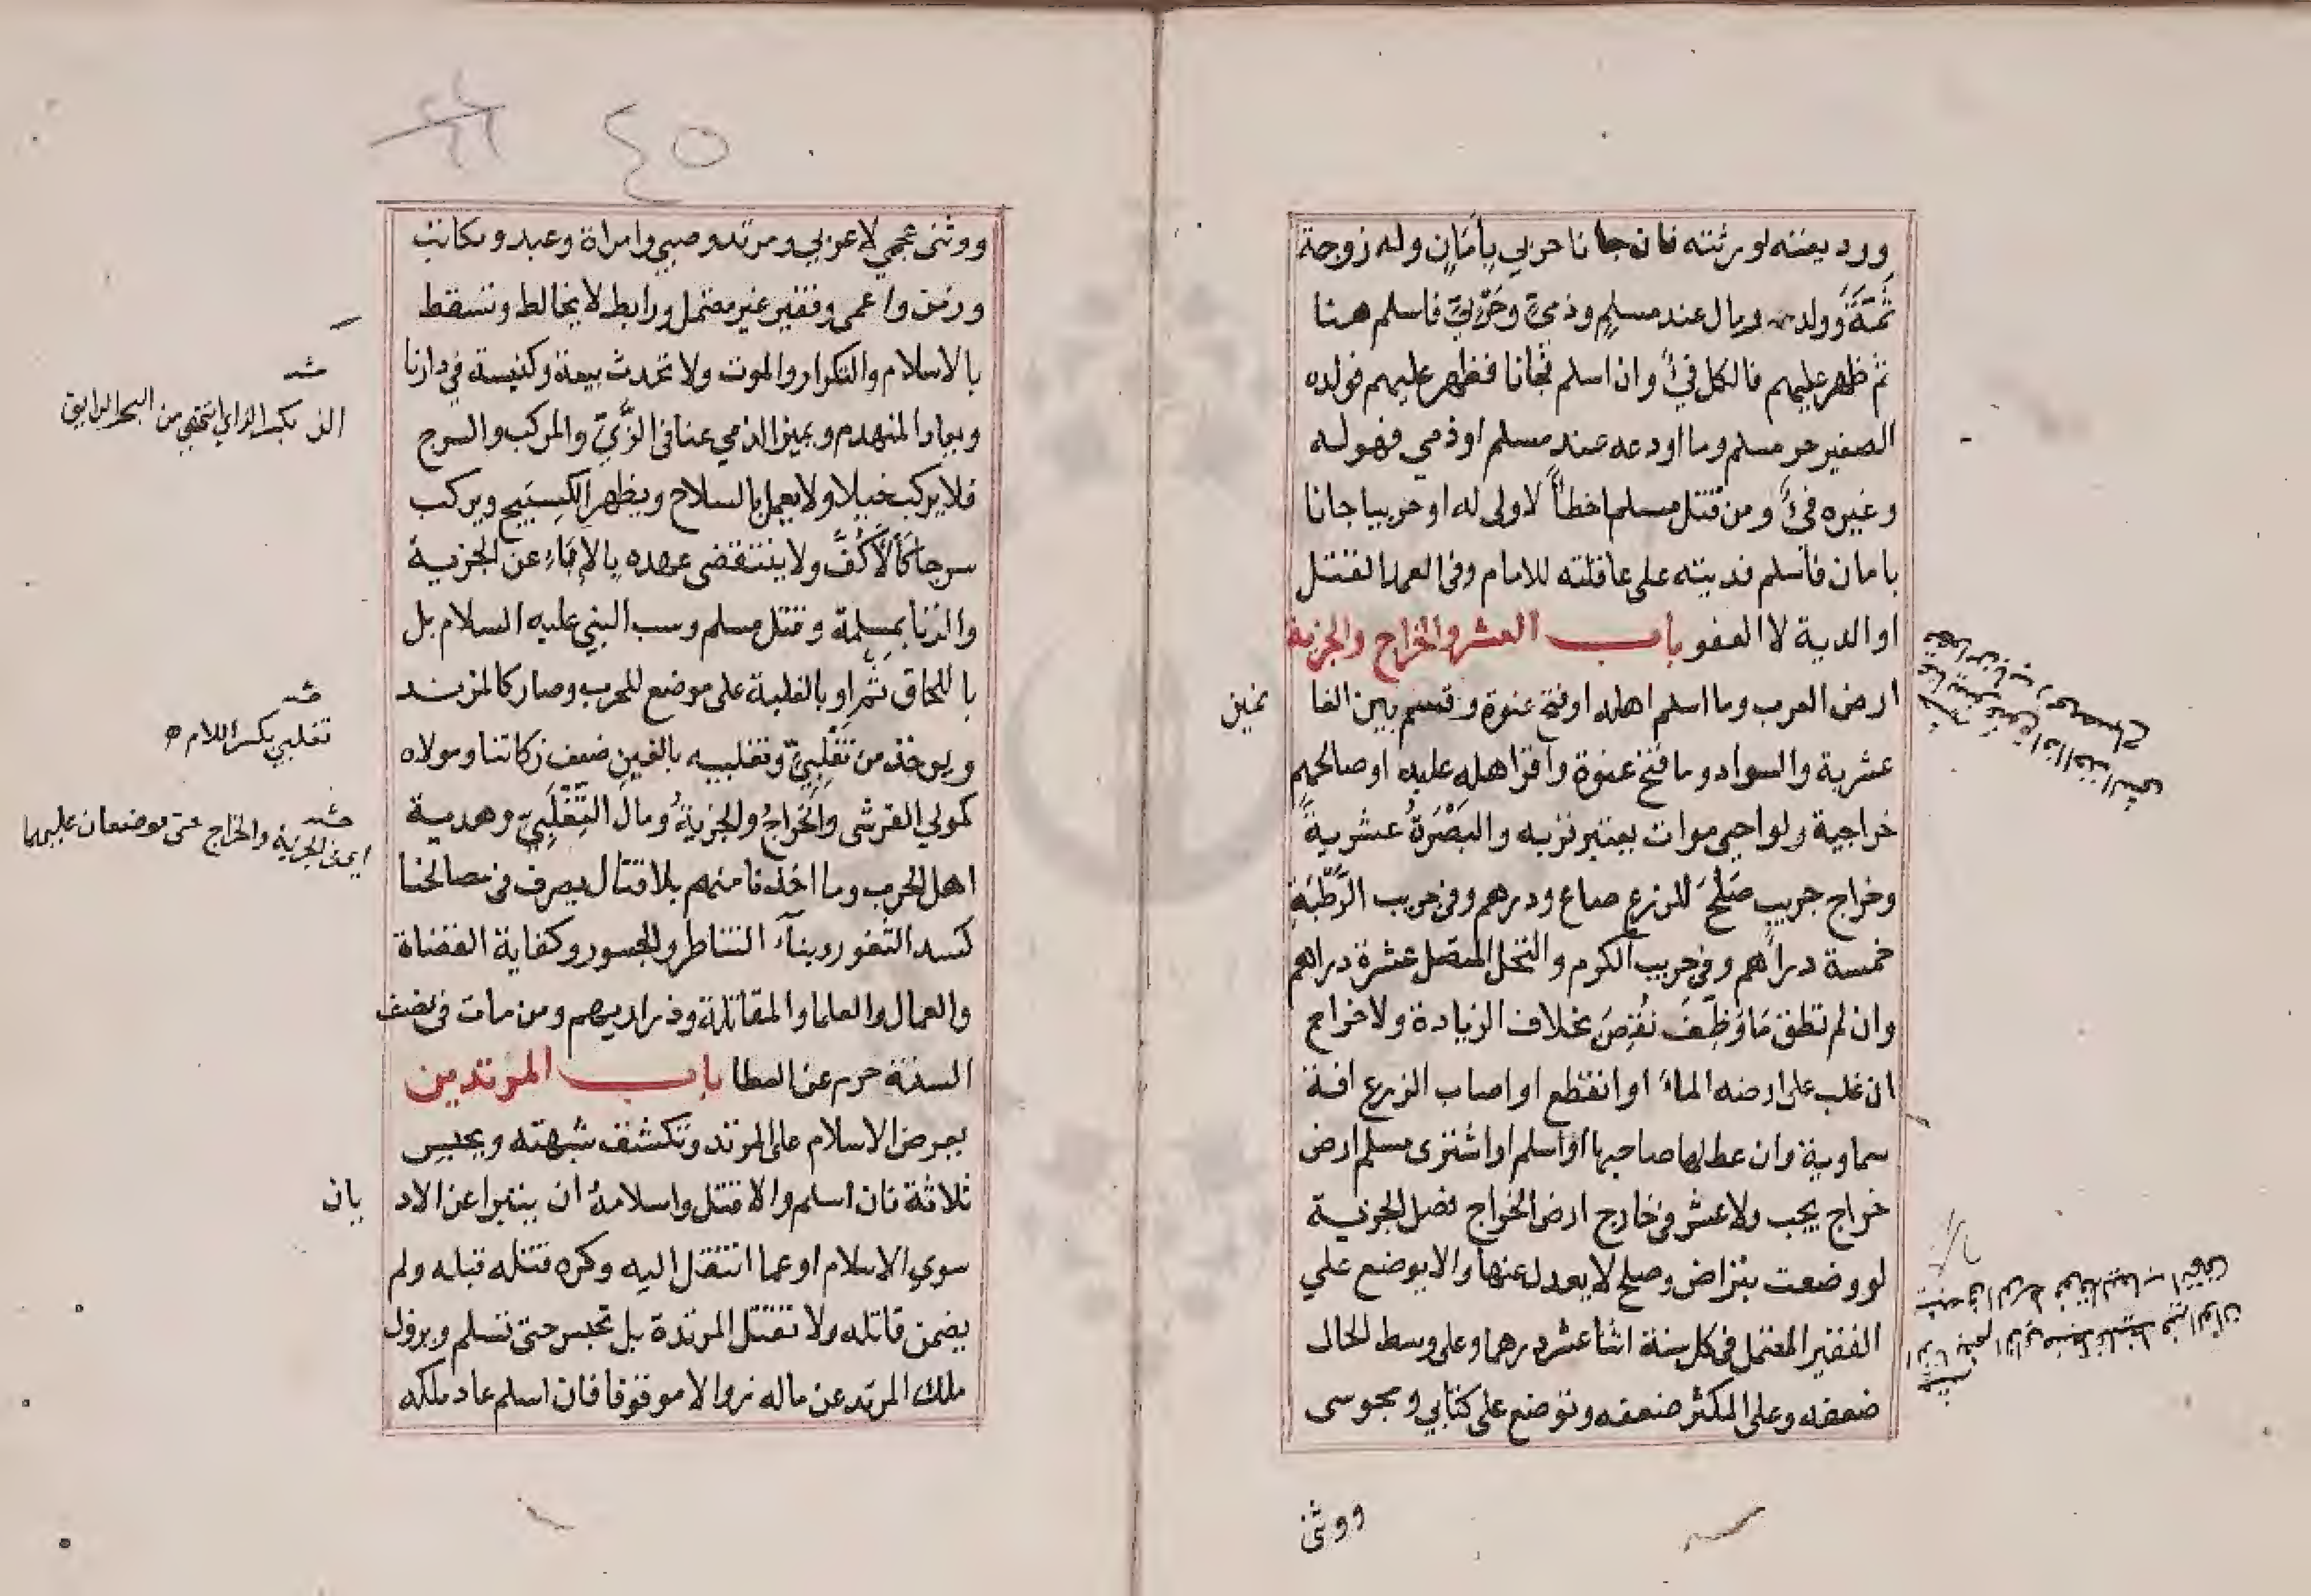 ووديعته لورثته فان جانا حربي بأمان وله زوجة
ثمة وولد ومال عند مسلم وذمي وحربي فاسلم هنا
ثم ظهر عليهم فالكل فيء وان اسلم ثم جانا فظهر عليهم فولده
الصغير حر مسلم وما اودعه عند مسلم او ذمي فهو له
وغيره فيء ومن قتل مسلما خطأ لا ولي له او حربيا جانا
بامان فأسلم فديته على عاقلته للامام وفي العمد القتل
او الدية لا العفو باب العشر والخراج والجزية
ارض العرب وما اسلم اهله او فتح عنوة وقسم بين الغا نمين
عشرية والسواد وما فتح عنوة وأقر اهله عليه او صالحهم
خراجية ولو احيى موات يعتبر قربه والبَصْرَةُ عشرية
وخراج جريب صَلُحَ للزرع صاع ودرهم وفي جريب الرَّطْبَةِ
خمسة دراهم وفي جريب الكرم والنخل المتصل عشرة دراهم
وان لم تطق مَا وُظِّفَ نُقِصَ بخلاف الزيادة ولا خراج
ان غلب على ارضه الماء او انقطع او اصاب الزرع افة
سماوية وان عطلها صاحبها او اسلم او اشترى مسلم ارض
خراج يجب ولا عشر في خارج ارض الخراج فصل الجزية
لو وضعت بتراض وصلح لا يعدل عنها والا يوضع علي
الفقير المعتمل في كل سنة اثنا عشر درهما وعلى وسط الحال
ضعفه وعلى المكثر ضعفه وتوضع على كتابي ومجوسى
ووثنى
٤٥
ووثنى عجمي لا عربي ومرتد وصبي وامراة وعبد ومكاتب
وزمن واعمى وفقير غير معتمل وراهب لا يخالط وتسقط
بالاسلام والتكرار والموت ولا تحدث بيعة وكنيسة في دارنا
ويعاد المنهدم ويميز الذمي عنا في الزِّيِّ والمركب والسرج
فلا يركب خيلا ولا يعمل بالسلاح ويظهر الكُسْتِيج ويركب
سرجا كالأكف ولا ينتقض عهده بالإباء عن الجزية
والزنا بمسلمة وقتل مسلم وسب النبي عليه السلام بل
باللحاق ثم او بالغلبة على موضع للحرب وصار كالمرتد
ويوخذ من تغلبيّ وتغلبيه بالغين ضعف زكاتنا ومولاه
كمولي القرشى والخراج والجزية ومال التغلبيّ وهدية
اهل الحرب وما اخذنا منهم بلا قتال يصرف في مصالحنا
كسد الثغور وبناء القناطر والجسور وكفاية القضاة
والعمال والعلما والمقاتلة وذراريهم ومن مات في نصف
السنة حرم عن العطا باب المرتدين
يعرض الاسلام على المرتد وتكشف شبهته ويحبس
ثلاثة فان اسلم والا قتل واسلامه ان يتبرا عن الاد يان
سوي الاسلام او عما انتقل اليه وكره قتله قبله ولم
يضمن قاتله ولا تقتل المرتدة بل تحبس حتى تسلم ويزول
ملك المرتد عن ماله زوالا موقوفا فان اسلم عاد ملكه
الزي بكسر الزاي من البحر الرايق
تغلبي بكسر اللام
اي مصرف الجزية والخراج